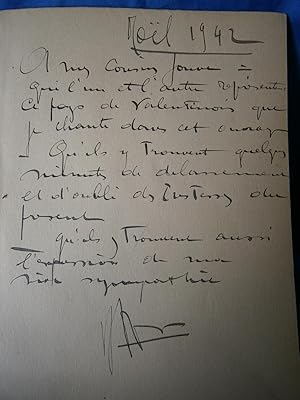 Noël 1942
A mes cousins Jouve =
qui l'un et l'autre représentent
ce pays de Valentinois que
je chante dans cet ouvrage
- Qu'ils y trouvent quelques
minutes de délassement
et d'oubli des tristesses du
présent
Qu'ils y trouvent aussi
l'expression de ma
sympathie